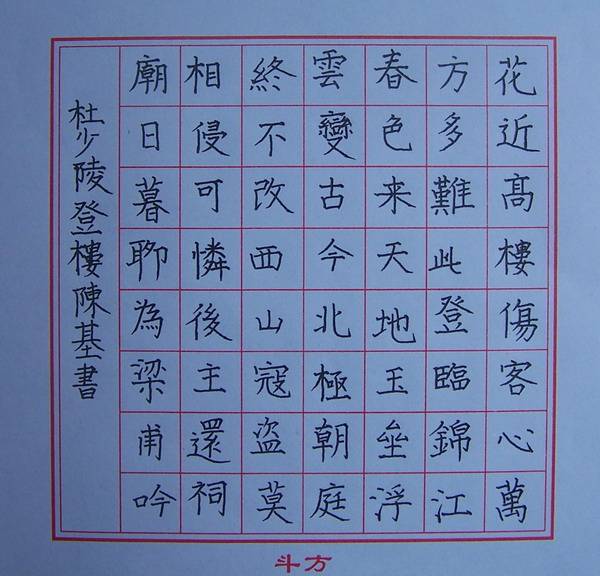 花近高樓傷客心萬
方多難此登臨錦江
春色来天地玉垒浮
雲變古今北極朝庭
終不改西山寇盗莫
相侵可憐後主還祠
廟日暮聊為梁甫吟
杜少陵登樓陳基書
斗方